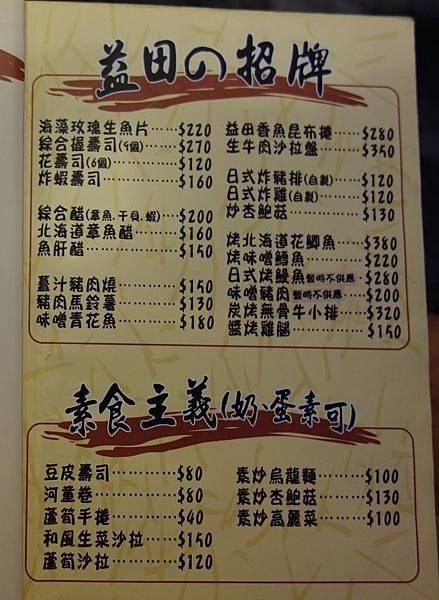 益田の招牌
海藻玫瑰生魚片⋯⋯$220
綜合握壽司(9個)⋯⋯$270
花壽司(6個)⋯⋯$120
炸蝦壽司⋯⋯$160
綜合醋(章魚.干貝.蝦)⋯$200
北海道章魚醋⋯⋯$160
魚肝醋⋯⋯$150
薑汁豬肉燒⋯⋯$150
豬肉馬鈴薯⋯⋯$130
味噌青花魚⋯⋯$180
益田香魚昆布捲⋯⋯$280
生牛肉沙拉盤⋯⋯$350
日式炸豬排(自製)⋯⋯$120
日式炸雞(自製)⋯⋯$120
炒杏鮑菇⋯⋯$130
烤北海道花鯽魚⋯⋯$380
烤味噌鱈魚⋯⋯$220
日式烤鰻魚暫時不供應⋯$280
味噌豬肉暫時不供應⋯$200
炭烤無骨牛小排⋯⋯$320
醬烤雞腿⋯⋯$150
素食主義(奶、蛋素可)
豆皮壽司⋯⋯$80
河童卷⋯⋯$80
蘆筍手捲⋯⋯$40
和風生菜沙拉⋯⋯$150
蘆筍沙拉⋯⋯$120
素炒烏龍麵⋯⋯$100
素炒杏鮑菇⋯⋯$130
素炒高麗菜⋯⋯$100